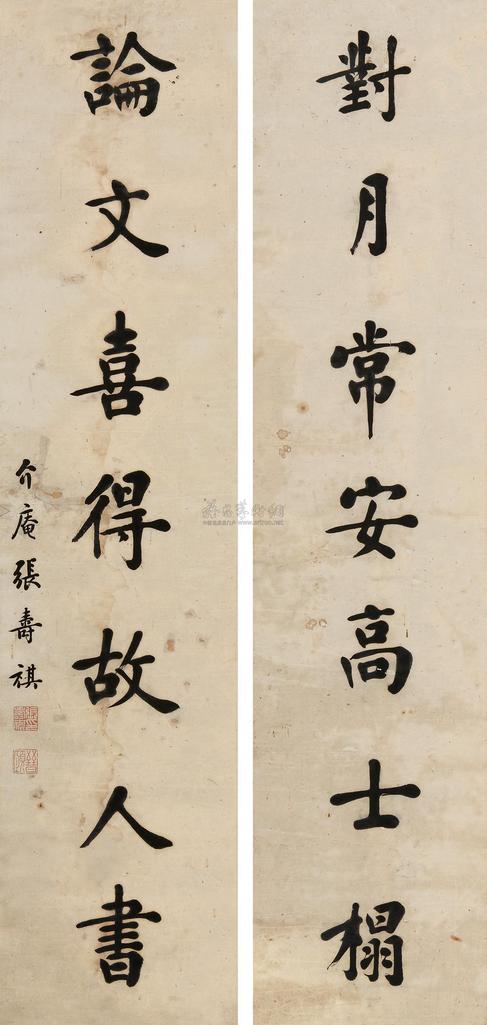 對月常安高士榻
論文喜得故人書
介庵張壽祺
www.artron.net